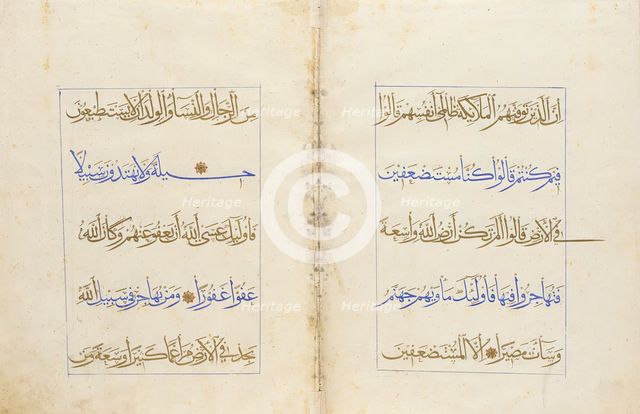 ان الذين توفيهم الملايكة ظالمي انفسهم قالوا
فيم كنتم قالوا كنا مستضعفين
في الارض قالوا الم تكن ارض الله واسعة
فتهاجروا فيها فاوليك ماويهم جهنم
وسات مصيرا الا المستضعفين
من الرجال والنساء والولدان لا يستطيعون
حيلة ولا يهتدون سبيلا
فاوليك عسى الله ان يعفو عنهم وكان الله
عفوا غفورا ومن يهاجر في سبيل الله
يجد في الارض مراغما كثيرا وسعة ومن
Heritage
Heritage
Heritage
Heritage
Heritage
Heritage
©